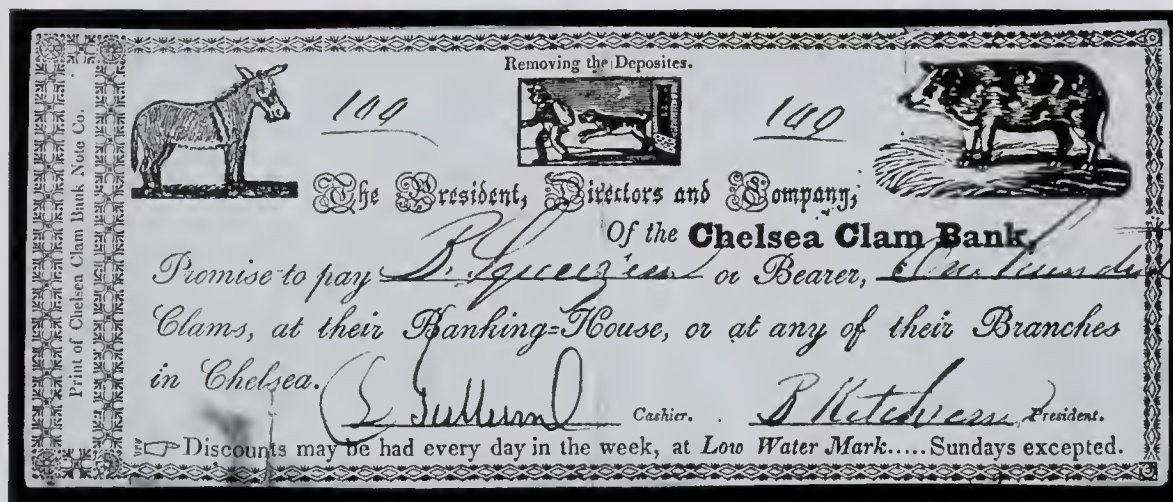 Print of Chelsea Clam Bank Note Co.
Removing the Deposites.
100 100
The President, Directors and Company,
Of the Chelsea Clam Bank,
Promise to pay or Bearer, One hundred
Clams, at their Banking=House, or at any of their Branches
in Chelsea. Cashier. President.
Discounts may be had every day in the week, at Low Water Mark.....Sundays excepted.